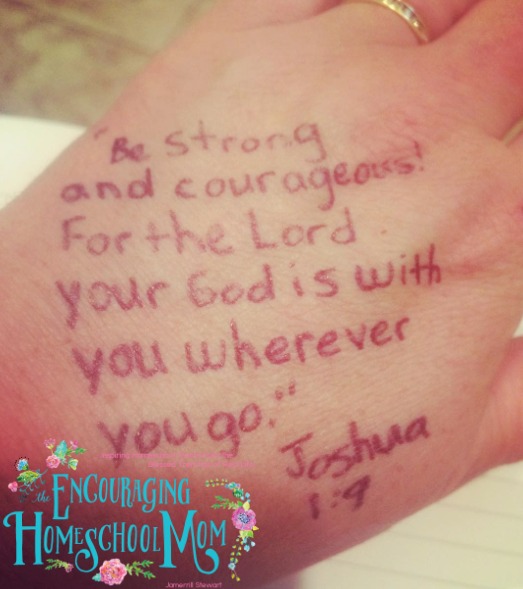 "Be strong
and courageous!
For the Lord
your God is with
you wherever
you go."
Joshua
1:9
the ENCOURAGING
HOMESCHOOL MOM
Jamerrill Stewart